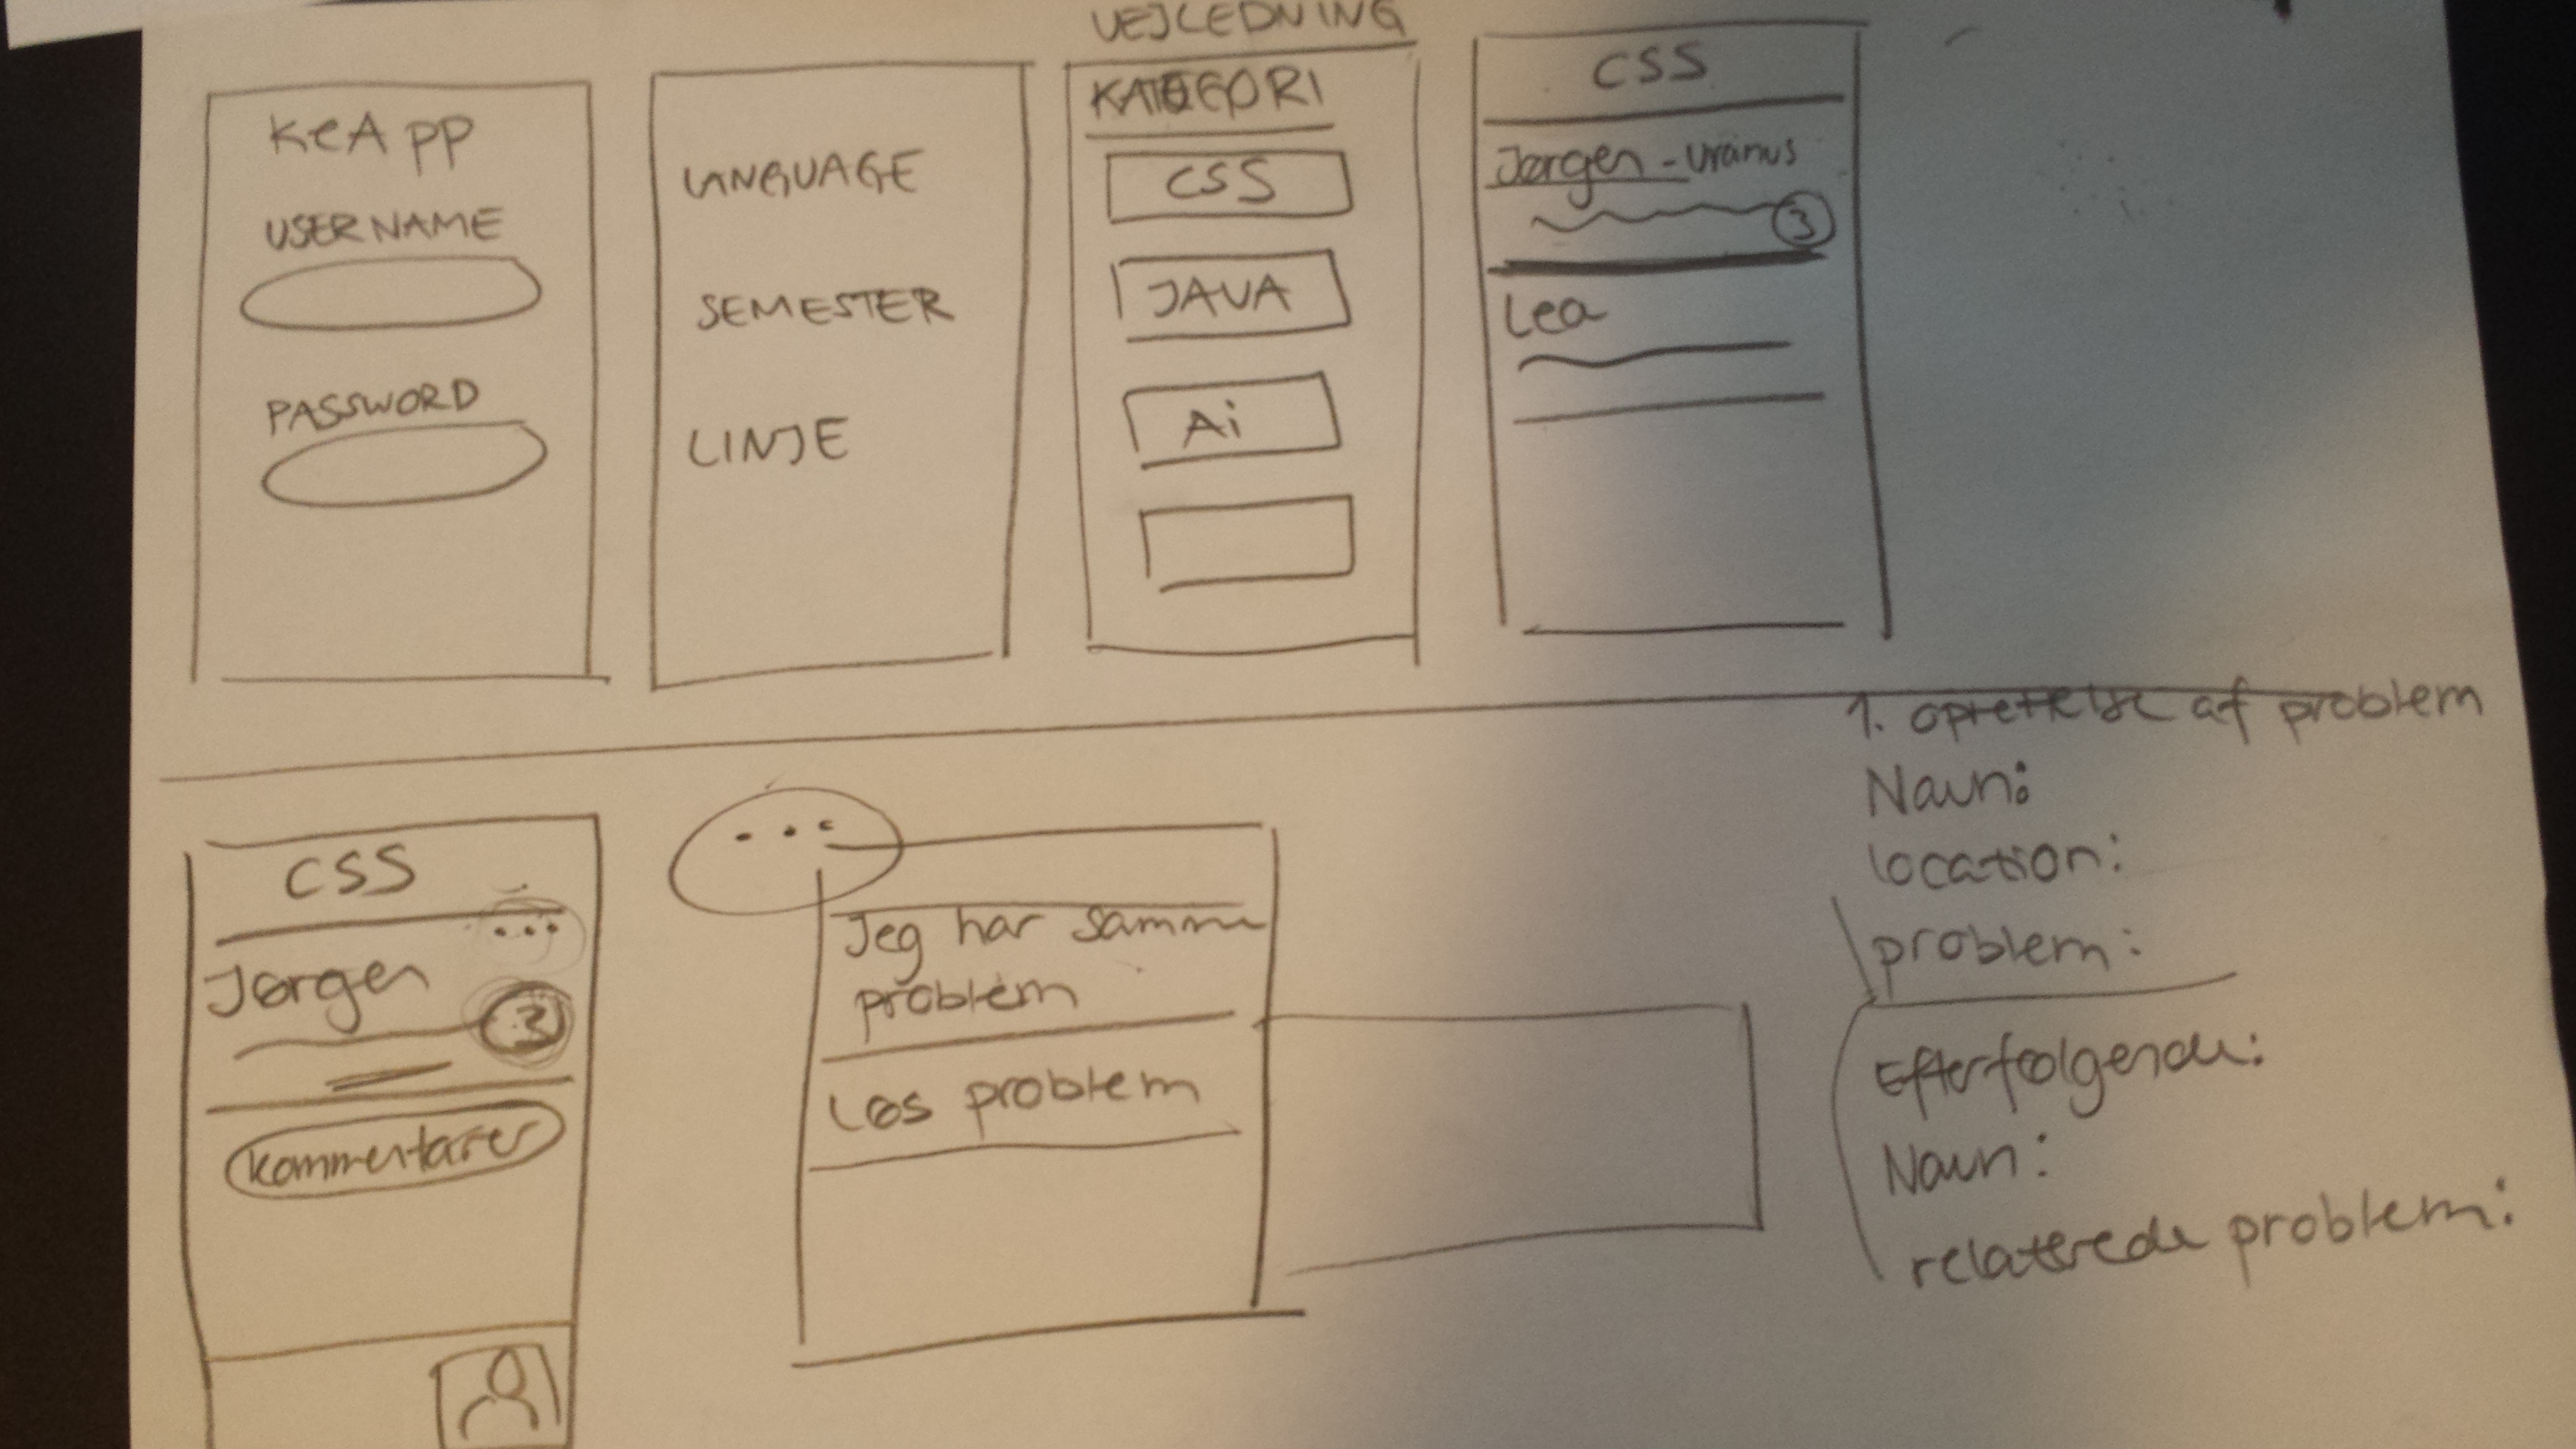 KeApp
USERNAME
PASSWORD
LANGUAGE
SEMESTER
LINJE
VEJLEDNING
KATEGORI
CSS
JAVA
Ai
CSS
Jørgen - Uranus
3
Lea
CSS
...
Jørgen
3
kommentarer
...
Jeg har samme
problem
Løs problem
1. oprettelse af problem
Navn:
location:
problem:
Efterfølgende:
Navn:
relaterede problem: